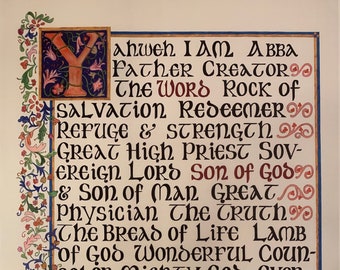 Yahweh I AM Abba
Father Creator
The Word Rock of
Salvation Redeemer
Refuge & Strength
Great High Priest Sov-
ereign Lord Son of God
& Son of Man Great
Physician The Truth
The Bread of Life Lamb
of God Wonderful Coun-
selor Mighty God